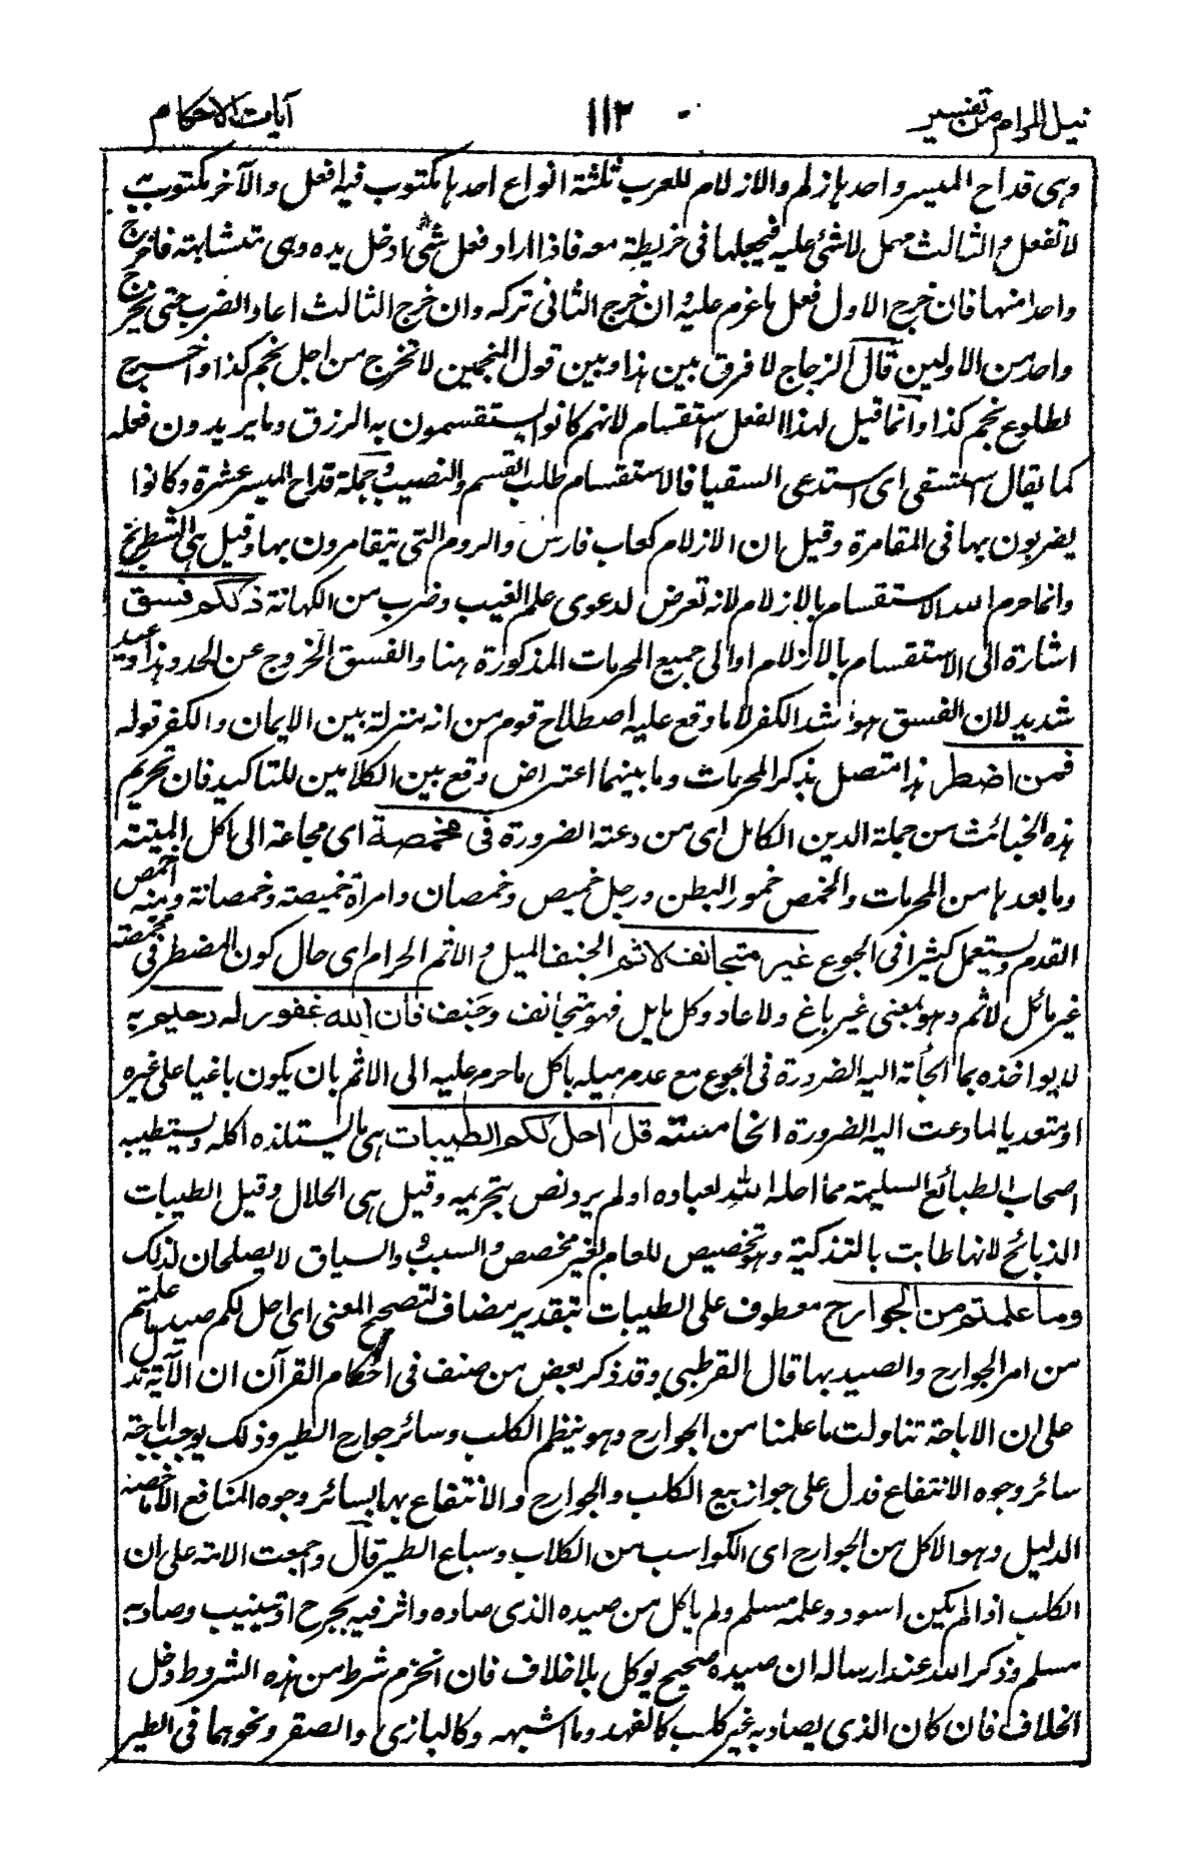 نيل المرام من تفسير ١١٢ آيات الاحكام
وهي قداح الميسر واحدها زلم والازلام للعرب ثلثة انواع احدها مكتوب فيه افعل والآخر مكتوب فيه
لا تفعل والثالث مهمل لا شئ عليه فيجعلها فى خريطة معه فاذا اراد فعل شئ ادخل يده وهى متشابهة فاخرج
واحدا منها فان خرج الاول فعل ما عزم عليه وان خرج الثانى تركه وان خرج الثالث اعاد الضرب حتى يخرج
واحد من الاولين قال الزجاج لا فرق بين هذا وبين قول المنجمين لا تخرج من اجل نجم كذا واخرج
لطلوع نجم كذا وانما قيل لهذا الفعل استقسام لانهم كانوا يستقسمون به الرزق وما يريدون فعله
كما يقال استسقى اى استدعى السقيا فالاستقسام طلب القسم والنصيب وجملة قداح الميسر عشرة وكانوا
يضربون بها فى المقامرة وقيل ان الازلام كعاب فارس والروم التى يتقامرون بها وقيل هى الشطرنج
وانما حرم الله الاستقسام بالازلام لانه تعرض لدعوى علم الغيب وضرب من الكهانة ذلكم فسق
اشارة الى الاستقسام بالازلام او الى جميع المحرمات المذكورة هنا والفسق الخروج عن الحد وهذا وعيد
شديد لان الفسق هو اشد الكفر لا ما وقع عليه اصطلاح قوم من انه منزلة بين الايمان والكفر قوله
فمن اضطر هذا متصل بذكر المحرمات وما بينهما اعتراض وقع بين الكلامين للتاكيد فان تحريم
هذه الخبائث من جملة الدين الكامل اى من دعته الضرورة فى مخمصة اى مجاعة الى اكل الميتة
وما بعدها من المحرمات والخمص ضمور البطن ورجل خميص وخمصان وامرأة خميصة وخمصانة ومنه اخمص
القدم ويستعمل كثيرا فى الجوع غير متجانف لاثم الجنف الميل والاثم الحرام اى حال كون المضطر فى مخمصة
غير مائل لاثم وهو بمعنى غير باغ ولا عاد وكل مايل فهو متجانف وجنف فان الله غفور له رحيم به
لا يواخذه بما الجأته اليه الضرورة فى الجوع مع عدم ميله باكل ما حرم عليه الى الاثم بان يكون باغيا على غيره
او متعديا لما دعت اليه الضرورة الخامسة قل احل لكم الطيبات هى ما يستلذه اكله ويستطيبه
اصحاب الطبائع السليمة مما احله الله لعباده او لم يرد نص بتحريمه وقيل هى الحلال وقيل الطيبات
الذبائح لانها طابت بالتذكية وهو تخصيص للعام لغير مخصص والسبب والسياق لا يصلحان لذلك
وما علمتم من الجوارح معطوف على الطيبات بتقدير مضاف لتصحيح المعنى اى احل لكم صيد ما علمتم
من امر الجوارح والصيد بها قال القرطبى وقد ذكر بعض من صنف فى احكام القرآن ان الآية تدل
على ان الاباحة تناولت ما علمنا من الجوارح وهو ينظم الكلب وسائر جوارح الطير وذلك يوجب اباحة
سائر وجوه الانتفاع فدل على جواز بيع الكلب والجوارح والانتفاع بها بسائر وجوه المنافع الا ما خصه
الدليل وهو الاكل من الجوارح اى الكواسب من الكلاب وسباع الطير قال واجمعت الامة على ان
الكلب اذا لم يكن اسود وعلمه مسلم ولم ياكل من صيده الذى صاده واثر فيه بجرح او تنييب وصاد به
مسلم وذكر الله عند ارساله ان صيده صحيح يوكل بلا خلاف فان انخرم شرط من هذه الشروط دخل
الخلاف فان كان الذى يصاد به غير كلب كالفهد وما اشبهه وكالبازى والصقر ونحوهما فى الطير